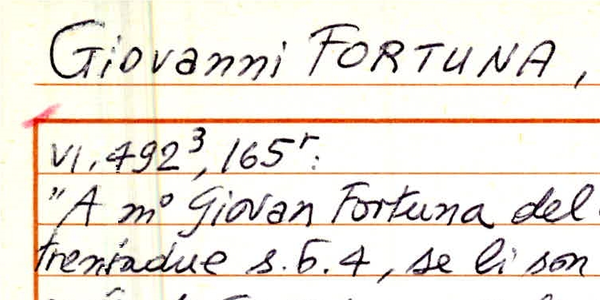 Giovanni FORTUNA,
VI, 492³, 165ʳ:
"A mº Giovan Fortuna del
trentadue s.6.4, se li son